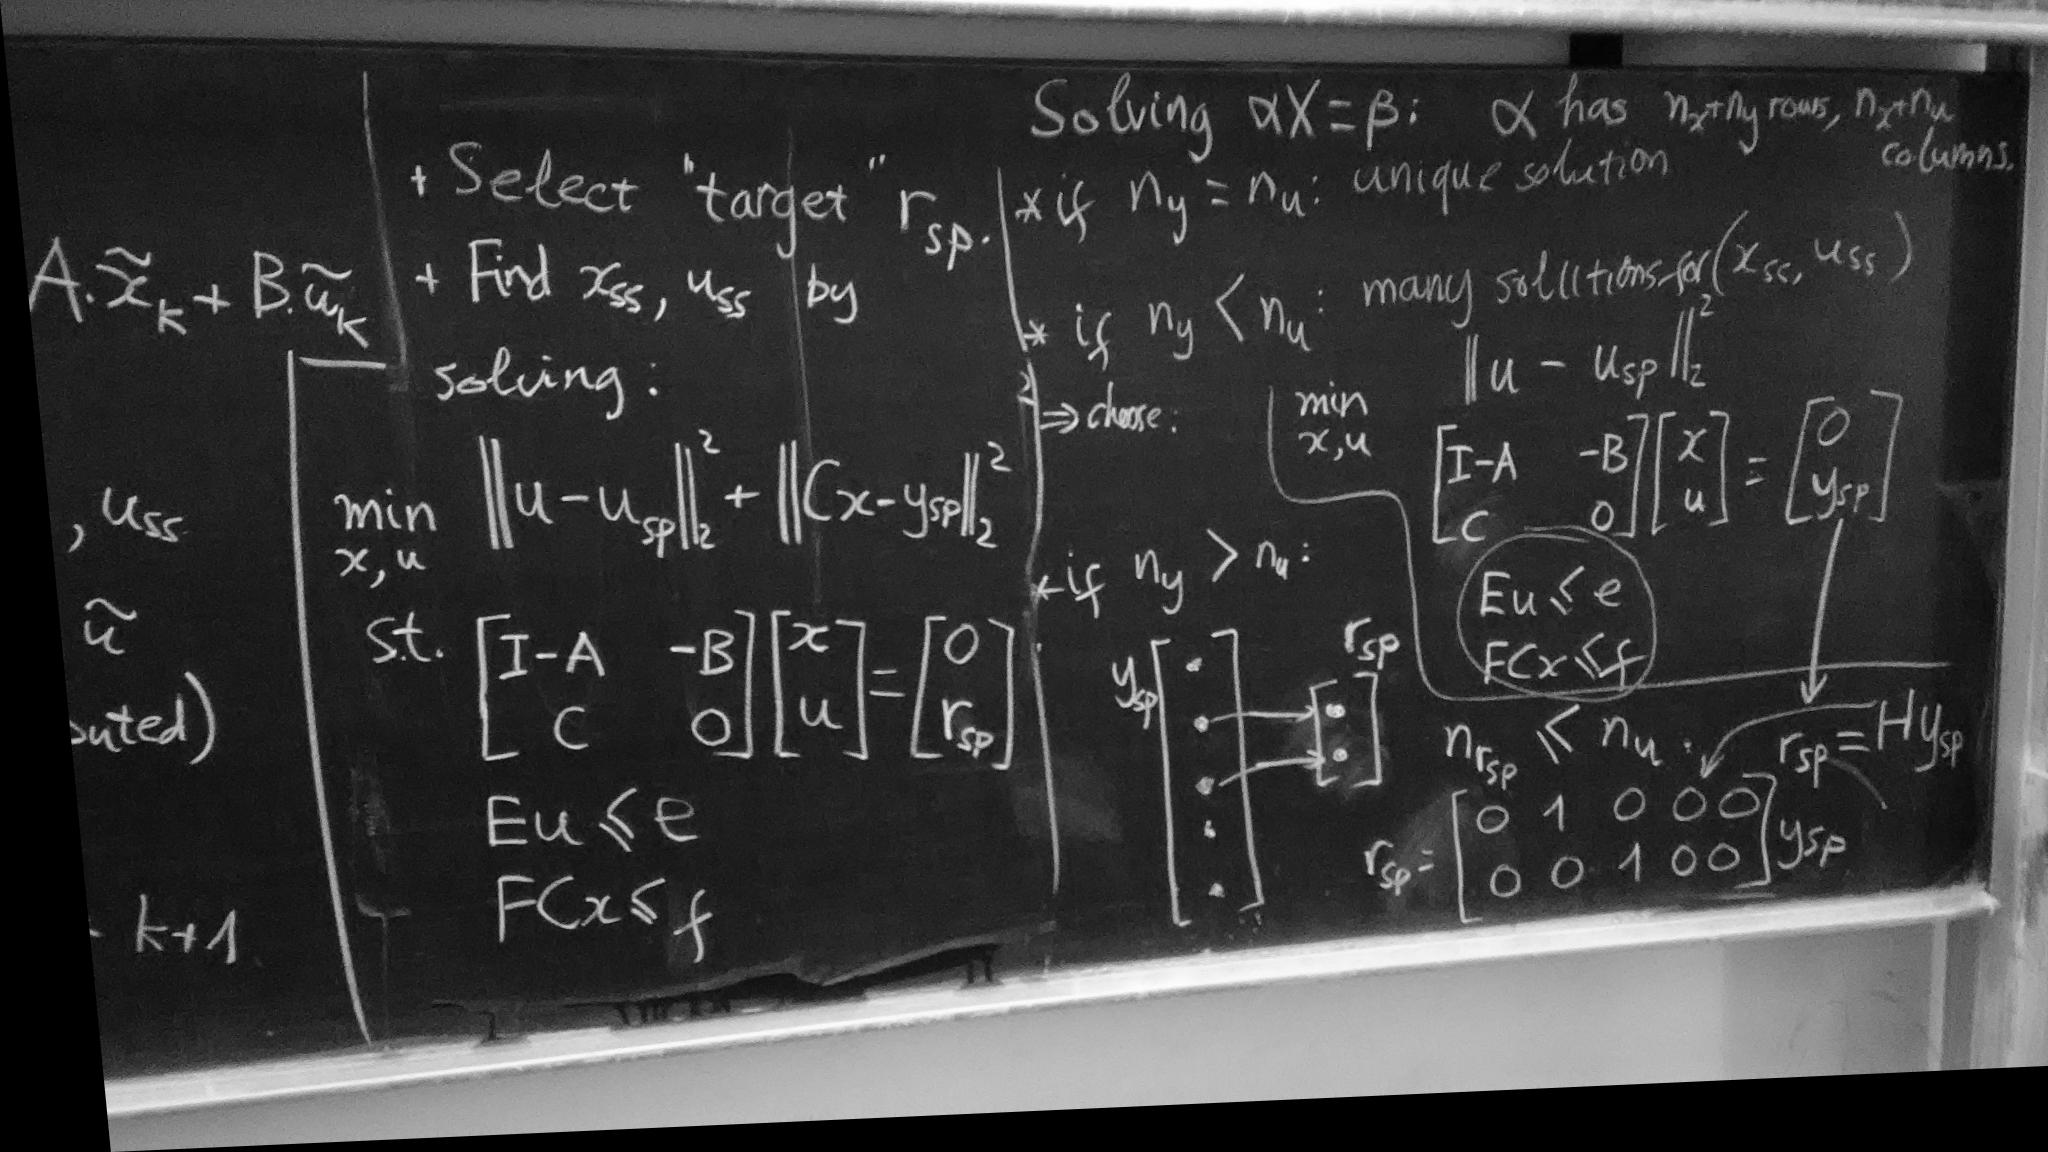 A.x̃_k + B.ũ_k
, u_ss
ũ
outed)
k+1
+ Select "target" r_sp.
+ Find x_ss, u_ss by
solving:
min x,u ‖u - u_sp‖₂² + ‖Cx - y_sp‖₂²
s.t. [I-A -B; C 0] [x; u] = [0; r_sp]
Eu ⩽ e
FCx ⩽ f
Solving αX = β: α has n_x+n_y rows, n_x+n_u
columns.
* if n_y = n_u: unique solution
* if n_y < n_u: many solutions for (x_ss, u_ss)
⇒ choose: min x,u ‖u - u_sp‖₂²
[I-A -B; C 0] [x; u] = [0; y_sp]
Eu ⩽ e
FCx ⩽ f
* if n_y > n_u:
y_sp [ ] r_sp [ ]
n_r_sp ⩽ n_u. r_sp = Hy_sp
r_sp = [0 1 0 0 0; 0 0 1 0 0] y_sp